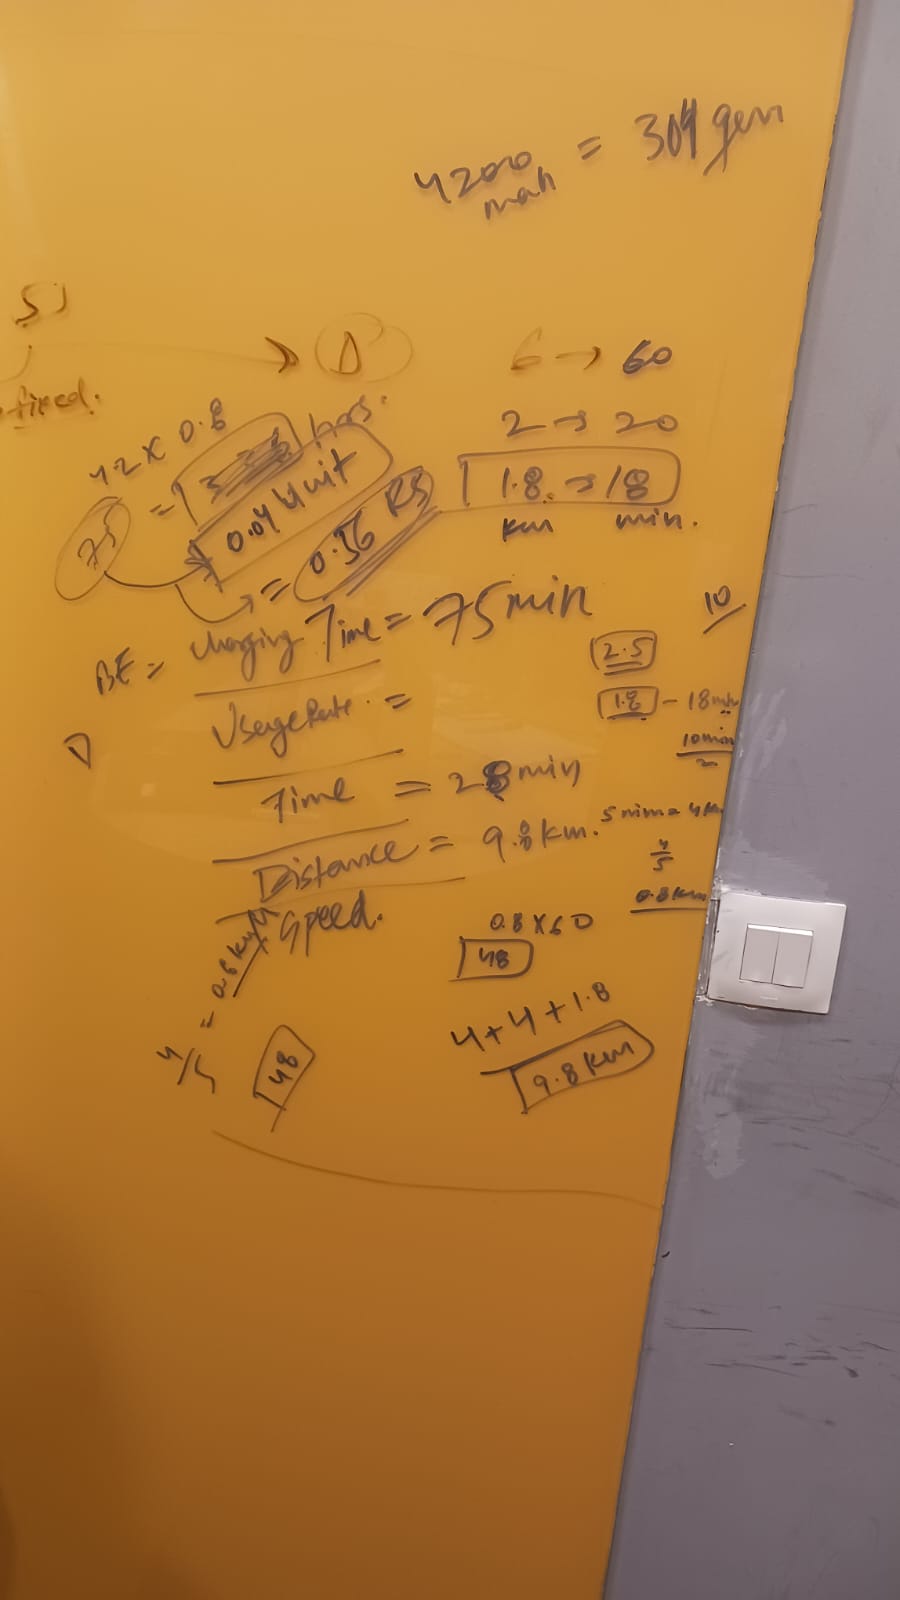 4200 mah = 304 gem
S)
fixed.
D
6 → 60
2 → 20
1.8 → 18
km min.
42 x 0.8
75 = hrs.
0.04 Unit
= 0.36 RS
BE = Charging Time = 75 min
Usage Rate. =
Time = 28 min
Distance = 9.8 km.
Speed.
10
2.5
1.8 - 18 min
10 min
2
5 min = 4 km
4/5
0.8 km
0.8 x 60
48
4/5 = 0.8 km/M
48
4+4+1.8
9.8 km